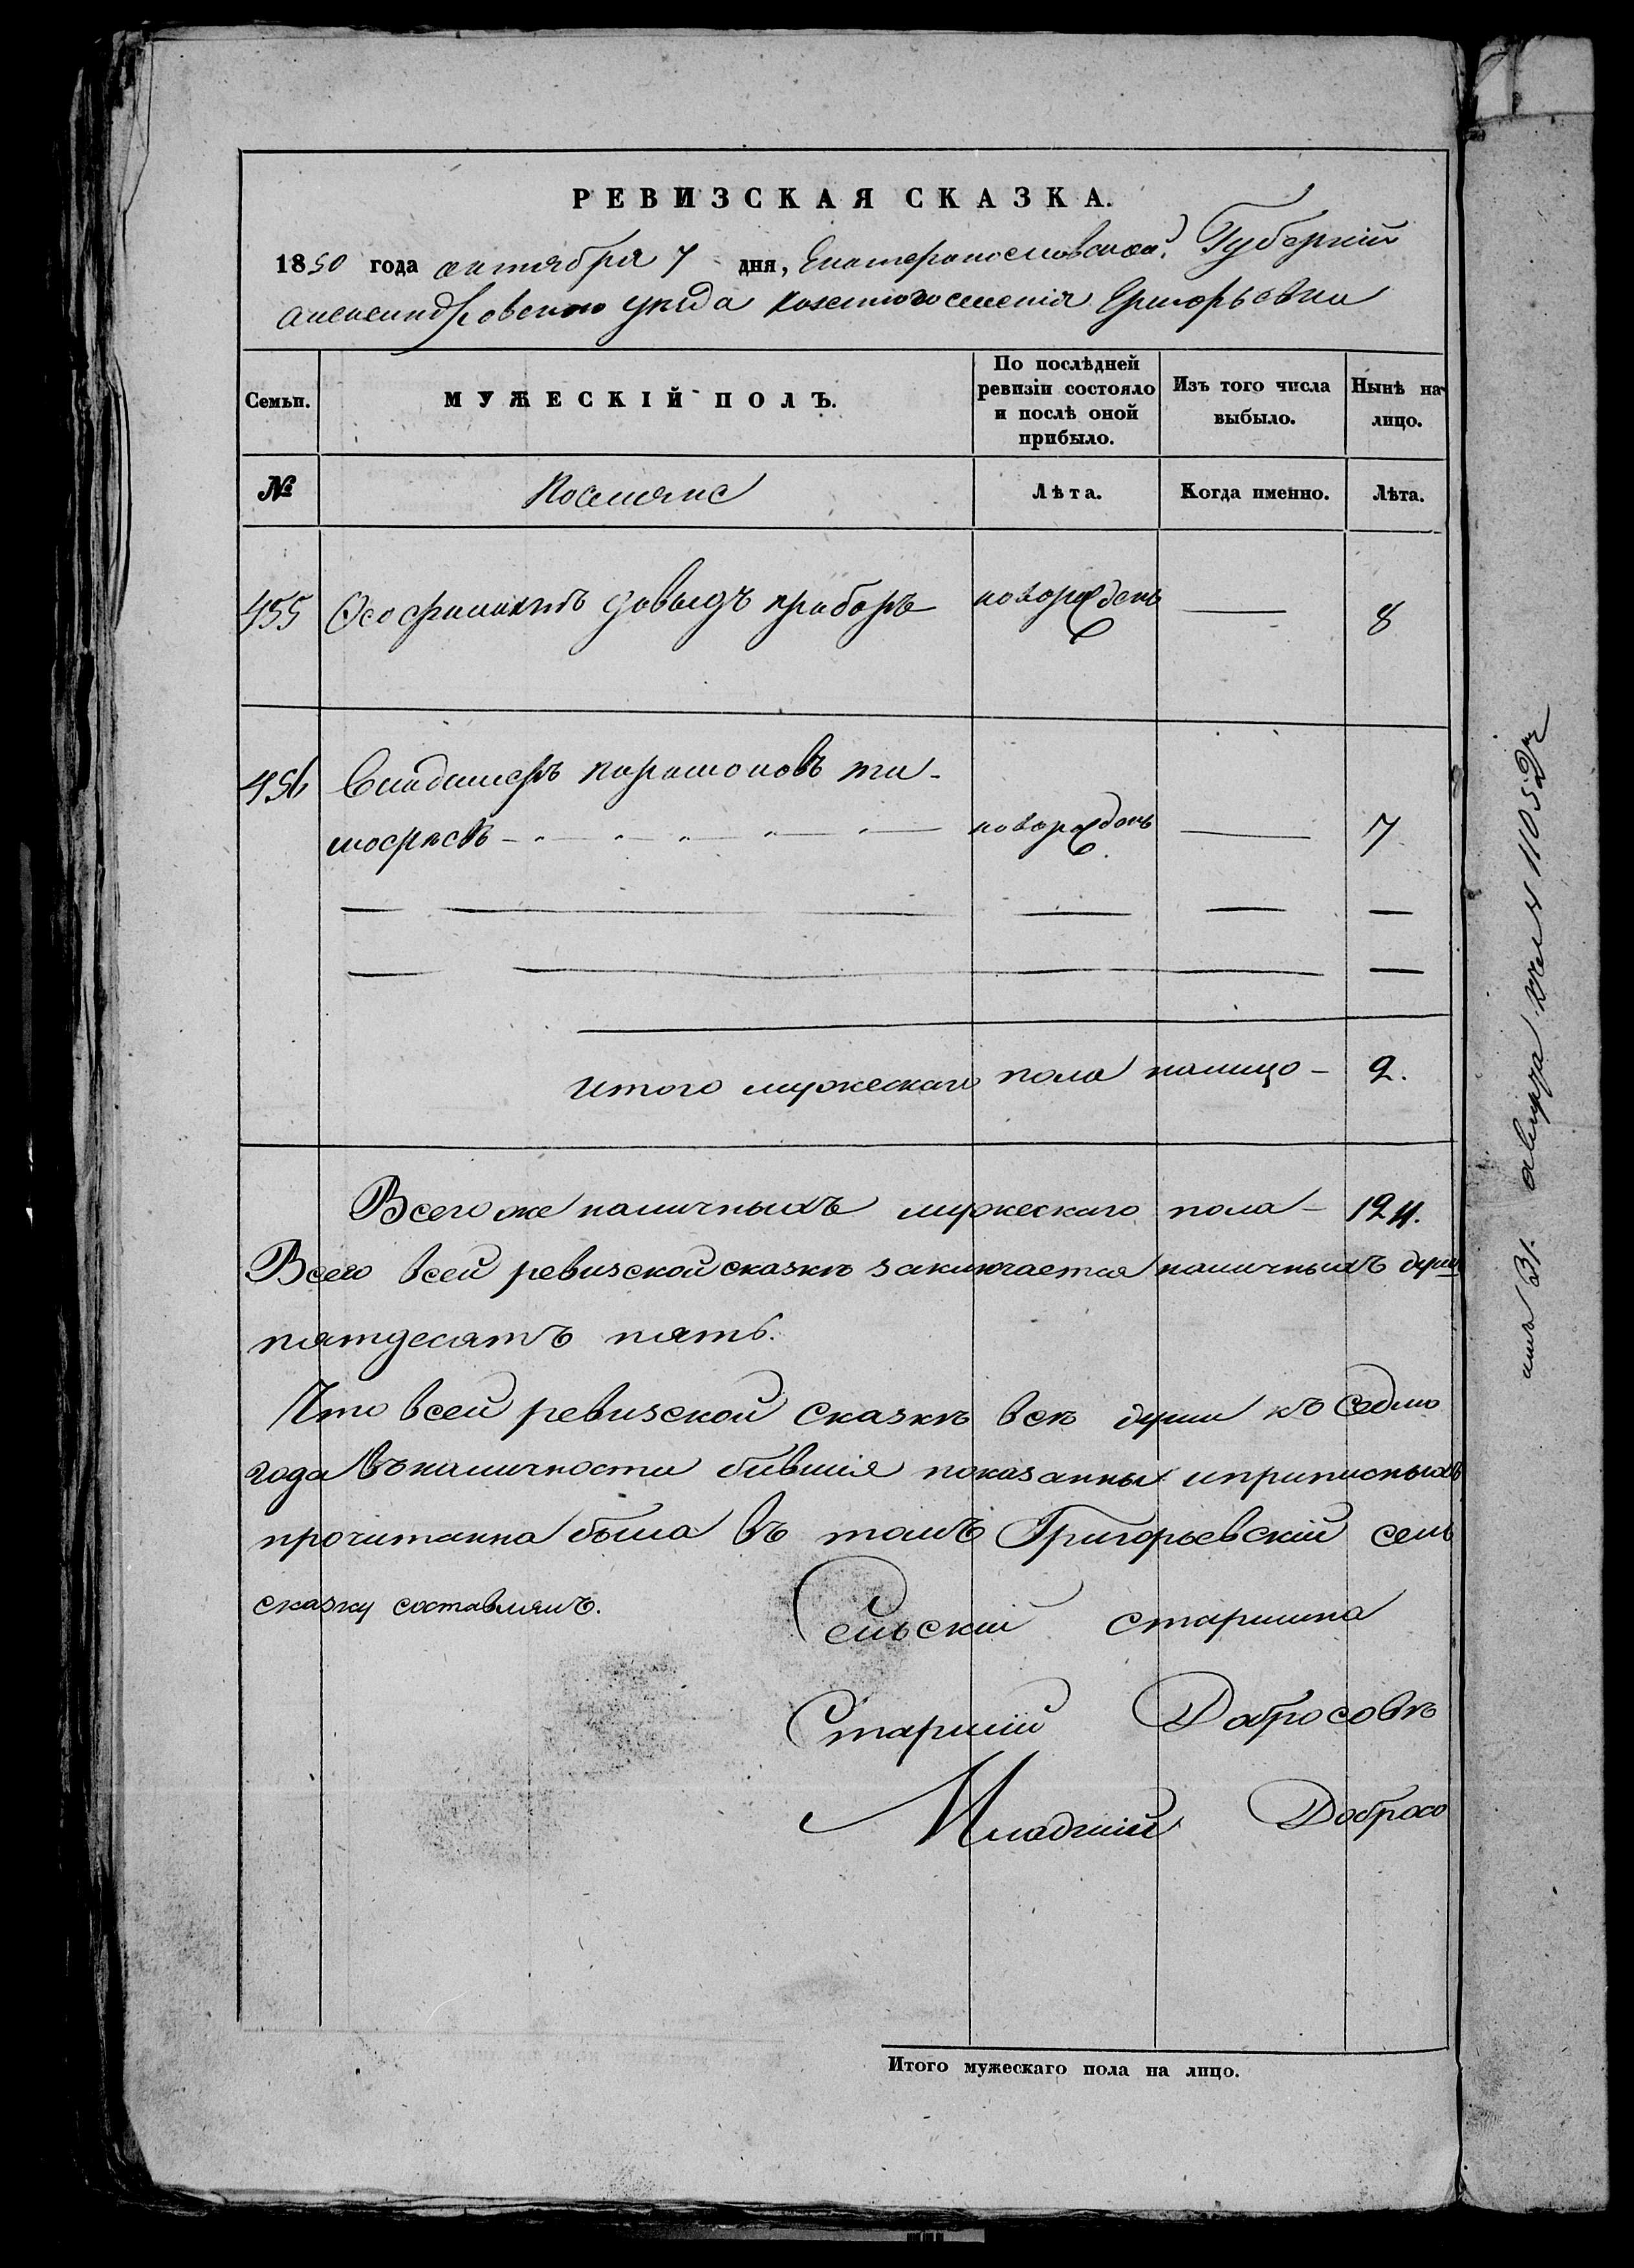 РЕВИЗСКАЯ СКАЗКА.
1850 года октября 7 дня, Екатеринославской Губерніи
Александровскаго уезда казенного селенія Григорьевки
Семьи.
МУЖЕСКІЙ ПОЛЪ.
По послѣдней ревизіи состояло и послѣ оной прибыло.
Изъ того числа выбыло.
Нынѣ на-лицо.
№
Поселяне
Лѣта.
Когда именно.
Лѣта.
455 Феофилактъ Давыдъ новорожденъ — 8
456 Владимеръ Парамоновъ ти-
мофѣевъ новорожденъ — 7
Итого мужескаго пола налицо - 2.
Всего же наличныхъ мужескаго пола -
Всего всей ревизской сказкѣ заключается наличныхъ душъ
пятдесятъ пять.
Что всей ревизской сказкѣ всѣ души къ седмо
года въ наличности бывшія показанны и приписныхъ
прочитанна была въ томъ Григорьевскій сель
сказку составлялъ.
Сельскій старшина
Старшій
Младшій
31. 1105
Итого мужескаго пола на лицо.